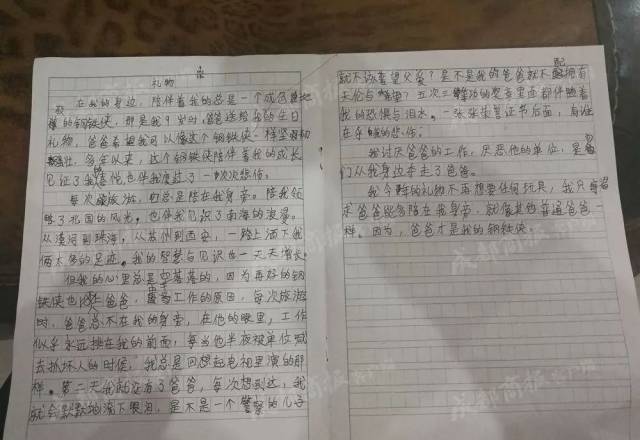 礼物
在我的身边，陪伴着我的总是一个成色
的钢铁侠，那是我 岁时，爸爸送给我的生日
礼物，爸爸希望我可以像这个钢铁侠一样坚
强，多年以来，这个钢铁侠陪伴着我的成长
见证了我 ，也伴我度过了一次次悲伤。
每次旅游，他总是陪在我身旁。陪我领
略了北国的风光，也伴我见识了南海的浪漫。
从渣河到珠海，从苏州到西安，一路上洒下我
俩太多的足迹。我的智慧与见识也一天天增长。
但我的心里总是空落落的，因为再好的钢
铁侠也 爸爸， 工作的原因，每次旅游
时，爸爸总不在我的身旁，在他的眼里，工作
似乎永远排在我的前面，每当他半夜被单位喊
去抓坏人的时候，我总是回想起电视里演的那
样。第二天我就没有了爸爸，每次想到这，我
就会默默地流下眼泪，是不是一个警察的儿子
就不该奢望父爱？是不是我的爸爸就不配拥有
天伦与 ？五次三等功的奖章里面都伴随着
我的恐惧与泪水。一张张荣誉证书后面，有谁
在乎 的悲伤。
我讨厌爸爸的工作，厌恶他的单位，是
们从我身边夺走了爸爸。
我今年的礼物不再想要任何玩具，我只
求爸爸能多陪在我身旁，就像其他普通爸爸一
样。因为，爸爸才是我的钢铁侠。
成都商报客户端
成都商报客户端